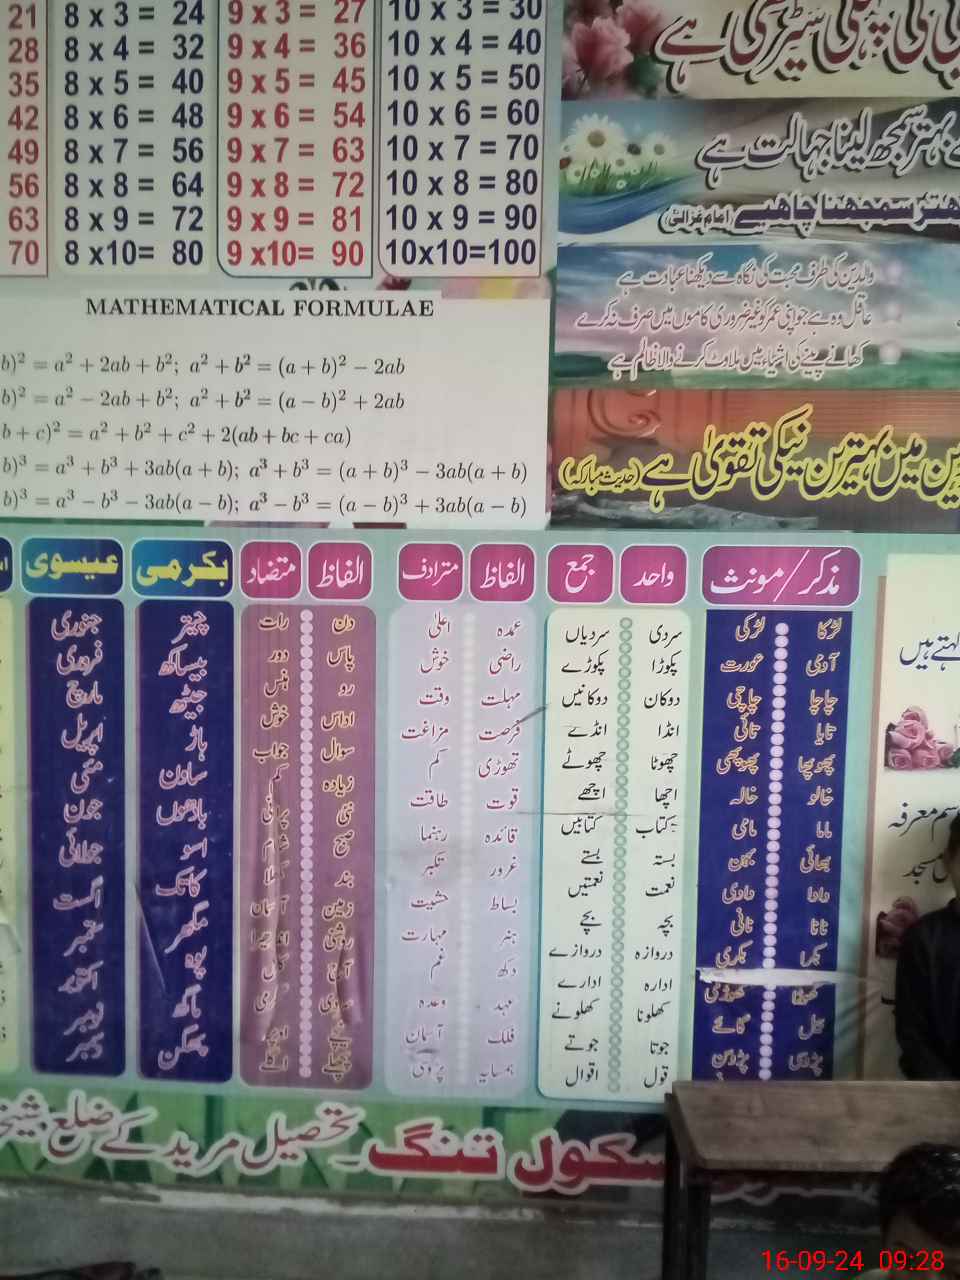 21 8 x 3 = 24 9 x 3 = 27 10 x 3 = 30
28 8 x 4 = 32 9 x 4 = 36 10 x 4 = 40
35 8 x 5 = 40 9 x 5 = 45 10 x 5 = 50
42 8 x 6 = 48 9 x 6 = 54 10 x 6 = 60
49 8 x 7 = 56 9 x 7 = 63 10 x 7 = 70
56 8 x 8 = 64 9 x 8 = 72 10 x 8 = 80
63 8 x 9 = 72 9 x 9 = 81 10 x 9 = 90
70 8 x10= 80 9 x10= 90 10x10=100
پہلی سیڑھی ہے
بہتر سمجھ لینا جہالت ہے
بہتر سمجھنا چاہیے (امام غزالیؒ)
والدین کی طرف محبت کی نگاہ سے دیکھنا عبادت ہے
عاقل وہ ہے جو اپنی عمر کو غیر ضروری کاموں میں صرف نہ کرے
کھانے پینے کی اشیاء میں ملاوٹ کرنے والا ظالم ہے
میں بہترین نیکی تقویٰ ہے (حدیث مبارکہ)
MATHEMATICAL FORMULAE
b)² = a² + 2ab + b²; a² + b² = (a + b)² − 2ab
b)² = a² − 2ab + b²; a² + b² = (a − b)² + 2ab
b + c)² = a² + b² + c² + 2(ab + bc + ca)
b)³ = a³ + b³ + 3ab(a + b); a³ + b³ = (a + b)³ − 3ab(a + b)
b)³ = a³ − b³ − 3ab(a − b); a³ − b³ = (a − b)³ + 3ab(a − b)
مذکر/مونث
لڑکا لڑکی
آدمی عورت
چاچا چاچی
تایا تائی
پھوپھا پھوپھی
خالو خالہ
ماما مامی
بھائی بہن
دادا دادی
نانا نانی
بکرا بکری
گھوڑا گھوڑی
بیل گائے
پڑوسی پڑوسن
واحد جمع
سردی سردیاں
پکوڑا پکوڑے
دوکان دوکانیں
انڈا انڈے
چھوٹا چھوٹے
اچھا اچھے
کتاب کتابیں
بستہ بستے
نعمت نعمتیں
بچہ بچے
دروازہ دروازے
ادارہ ادارے
کھلونا کھلونے
جوتا جوتے
قول اقوال
الفاظ مترادف
عمدہ اعلیٰ
راضی خوش
مہلت وقت
فرصت فراغت
تھوڑی کم
قوت طاقت
قائدہ رہنما
غرور تکبر
بساط حیثیت
ہنر مہارت
دکھ غم
عہد وعدہ
فلک آسمان
ہمسایہ پڑوسی
الفاظ متضاد
دن رات
پاس دور
رو ہنس
اداس خوش
سوال جواب
زیادہ کم
نئی پرانی
صبح شام
بند کھلا
زمین آسمان
روشنی اندھیرا
آج کل
سردی گرمی
نیچے اوپر
پچھلے اگلے
بکرمی
چیتر
بیساکھ
جیٹھ
ہاڑ
ساون
بھادوں
اسو
کاتک
مگھر
پوہ
ماگھ
پھگن
عیسوی
جنوری
فروری
مارچ
اپریل
مئی
جون
جولائی
اگست
ستمبر
اکتوبر
نومبر
دسمبر
سکول تنگ۔ تحصیل مریدکے ضلع
اسم معرفہ
مسجد
16-09-24 09:28